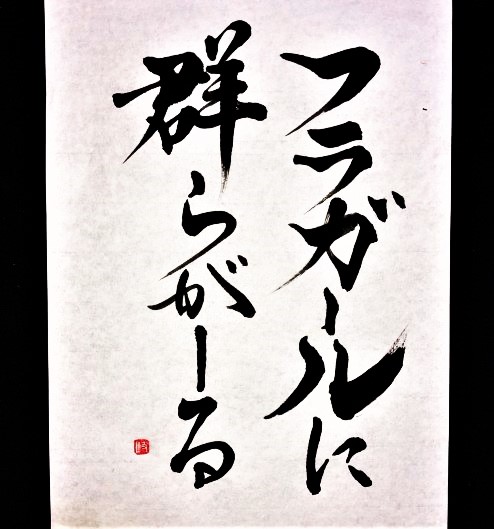 フラガールに
群らがーる